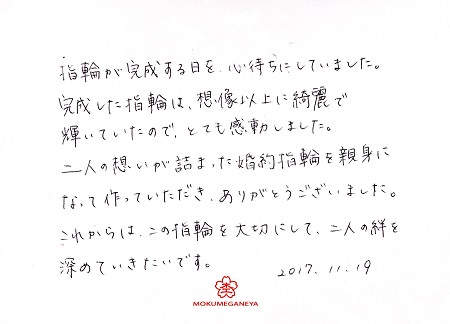 指輪が完成する日を、心待ちにしていました。
完成した指輪は、想像以上に綺麗で
輝いていたので、とても感動しました。
二人の想いが詰まった婚約指輪を親身に
なって作っていただき、ありがとうございました。
これからは、この指輪を大切にして、二人の絆を
深めていきたいです。
2017.11.19
MOKUMEGANEYA